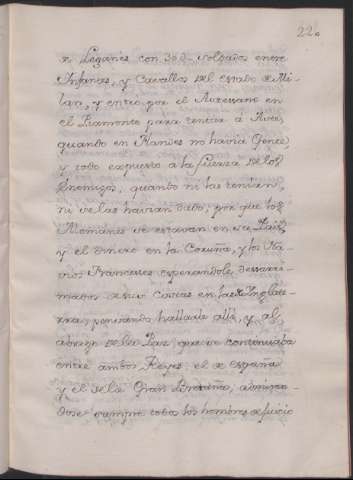 22.
de Leganes con 368 soldados entre
Infantes, y Cavallos del estado de Mi-
lan, y entro por el Auressano en
el Piamonte para rendir á
quando en Flandes no havia Gente
y todo expuesto a la fuerza de los
Enemigos, quando ni las tenian,
ni se las havian dado, por que los
Alemanes se estavan en su Pais
y el dinero en la Coruña, y los Na-
vios Franceses esperandole
costas en la Inglate-
rra, pensando hallarle alli, y al
abrigo de la Paz que se continuaba
entre ambos Reyes, el de españa
y el de la Gran Bretaña,
dose siempre todos los hombres de juicio